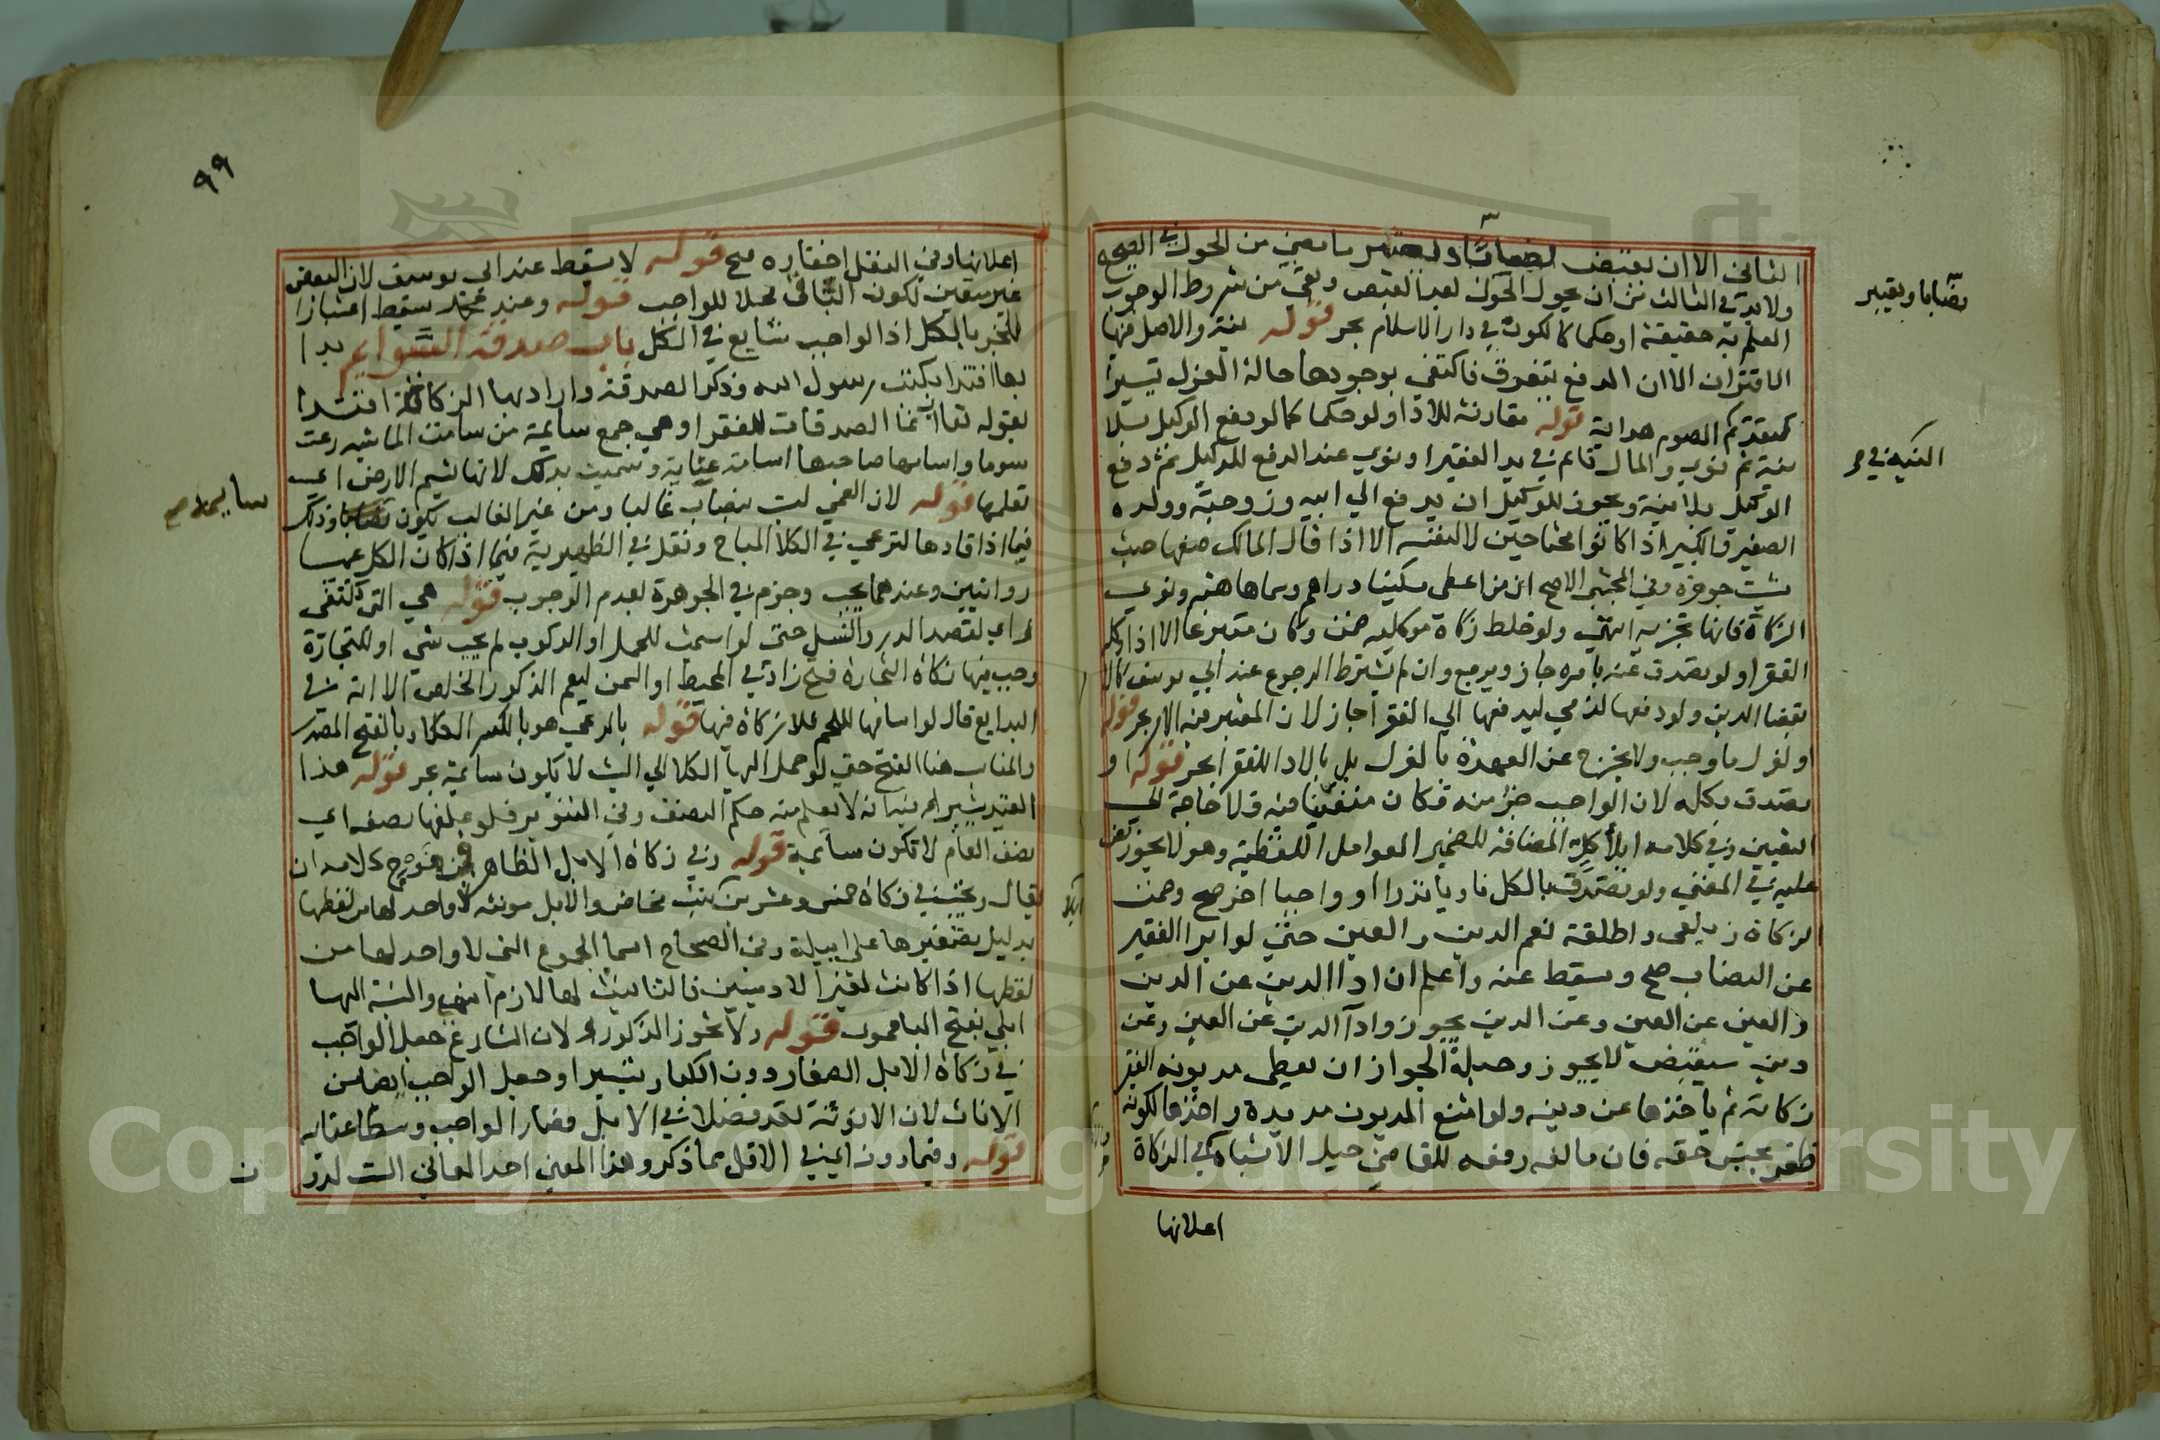 الثاني الا ان يقبض نصابا ويعتبر ما مضى من الحول في الصحيح
ولا بد في الثالث من ان يحول الحول بعد القبض وبقي من شروط الوجوب
العلم به حقيقة او حكما كالكون في دار الاسلام بحر قوله بنية والاصل فيها
الاقتران الا ان الدفع يتفرق فاكتفي بوجودها حالة العزل تيسيرا
كتقديم الصوم هداية قوله مقارنة للادا ولو حكما كما لو دفع الوكيل بلا
نية ثم نوى والمال قائم في يد الفقير او نوى عند الدفع للوكيل ثم دفع
الوكيل بلا نية ويجوز للوكيل ان يدفع الي ابيه وزوجته وولده
الصغير والكبير اذا كانوا محتاجين لا لنفسه الا اذا قال المالك ضعها حيث
شيت جوهرة وفي المجتبى الاصح ان من اعطى مسكينا دراهم وسماها هبة ونوى
الزكاة فانها تجزيه انتهى ولو خلط زكاة موكليه ضمن وكان متبرعا الا اذا وكله
الفقرا ولو تصدق عنه بامره جاز ويرجع وان لم يشترط الرجوع عند ابي يوسف كالامر
بقضا الدين ولو دفعها لذمي ليدفعها الي الفقرا جاز لان المعتبر نية الامر بحر قوله
او لعزل ما وجب ولا يخرج عن العهدة بالعزل بل بالادا للفقرا بحر قوله او
تصدق بكله لان الواجب جزء منه فكان متعينا فيه فلا حاجة الي
التعيين وفي كلامه ايلا كل المضافة للضمير العوامل اللفظية وهو لا يجوز نص
عليه في المغني ولو تصدق بالكل ناويا نذرا او واجبا اخر صح وضمن
الزكاة زيلعي واطلقه فعم الدين والعين حتى لو ابرا الفقير
عن النصاب صح وسقط عنه واعلم ان ادا الدين عن الدين
والعين عن العين وعن الدين يجوز وادآ الدين عن العين وعن
دين سيقبض لا يجوز وحيلة الجواز ان يعطي مديونه الفقير
زكاته ثم ياخذها عن دينه ولو امتنع المديون مد يده واخذها لكونه
ظفر بجنس حقه فان مانعه رفعه للقاضي حيل الاشباه في الزكاة
اعلانها
نصابا ويعتبر
النية في
٩٩
اعلانها وفي النفل اخفاره صح قوله لا يسقط عند ابي يوسف لان البعض
غير متعين لكون الباقي محلا للواجب قوله وعند محمد سقط اعتبارا
للجزء بالكل اذ الواجب شايع في الكل باب صدقة السوايم بدا
بها اقتدا بكتب رسول الله وذكر الصدقة واراد بها الزكاة اقتدا
بقوله تعالى انما الصدقات للفقرا وهي جمع سايمة من سامت الماشيه رعت
سوما واسامها صاحبها اسامة عناية وسميت بذلك لانها تسم الارض اي
تعلمها قوله لان الغني لت بنصاب غالبا ومن غير الغالب يكون نصابا وذلك
فيما اذا قادها لترعى في الكلا المباح ونقل في الظهيرية فيما اذا كان الكل عمـسا
روايتين وعندهما يجب وجزم في الجوهرة بعدم الوجوب قوله هي التي تكتفى
اي لقصد الدر والنسل حتى لو اسمت للحمل او الركوب لم يجب شي او للتجارة
وجب فيها زكاة التجارة فتح زاد في المحيط او السمن ليعم الذكور الخلص الا انه في
البدايع قال لو اسامها للحم فلا زكاة فيها قوله بالرعي هو بالكسر الكلا وبالفتح المصدر
والمناسب هنا الفتح حتى لو حمل اليها الكلا الي البيت لا تكون سايمة بحر قوله هذا
القيد يشير لانه لا يعلم منه حكم النصف وفي التنوير فلو علفها نصفه اي
نصف العام لا تكون سائمة قوله وفي زكاة الابل الظاهر كلامه ان
يقال وتجب في زكاة خمس وعشرين بنت مخاض والابل مونثه لا واحد لها من لفظها
بدليل تصغيرها على ابيلة وفي الصحاح اسما الجموع التي لا واحد لها من
لفظها اذا كانت لغير الادميين فالتانيث لها لازم انتهى والنسبة اليها
ابلي بفتح البا قوله ولا تجوز الذكور لان الشارع جعل الواجب
في زكاة الابل الصغار دون الكبار تيسيرا وجعل الواجب ايضا من
الاناث لان الانوثة تعد فضلا في الابل فصار الواجب وسطا عنايه
قوله وفيما دون اي في الاقل مما ذكر وهذا المعنى احد المعاني الست لدون
سايمة صح
ن